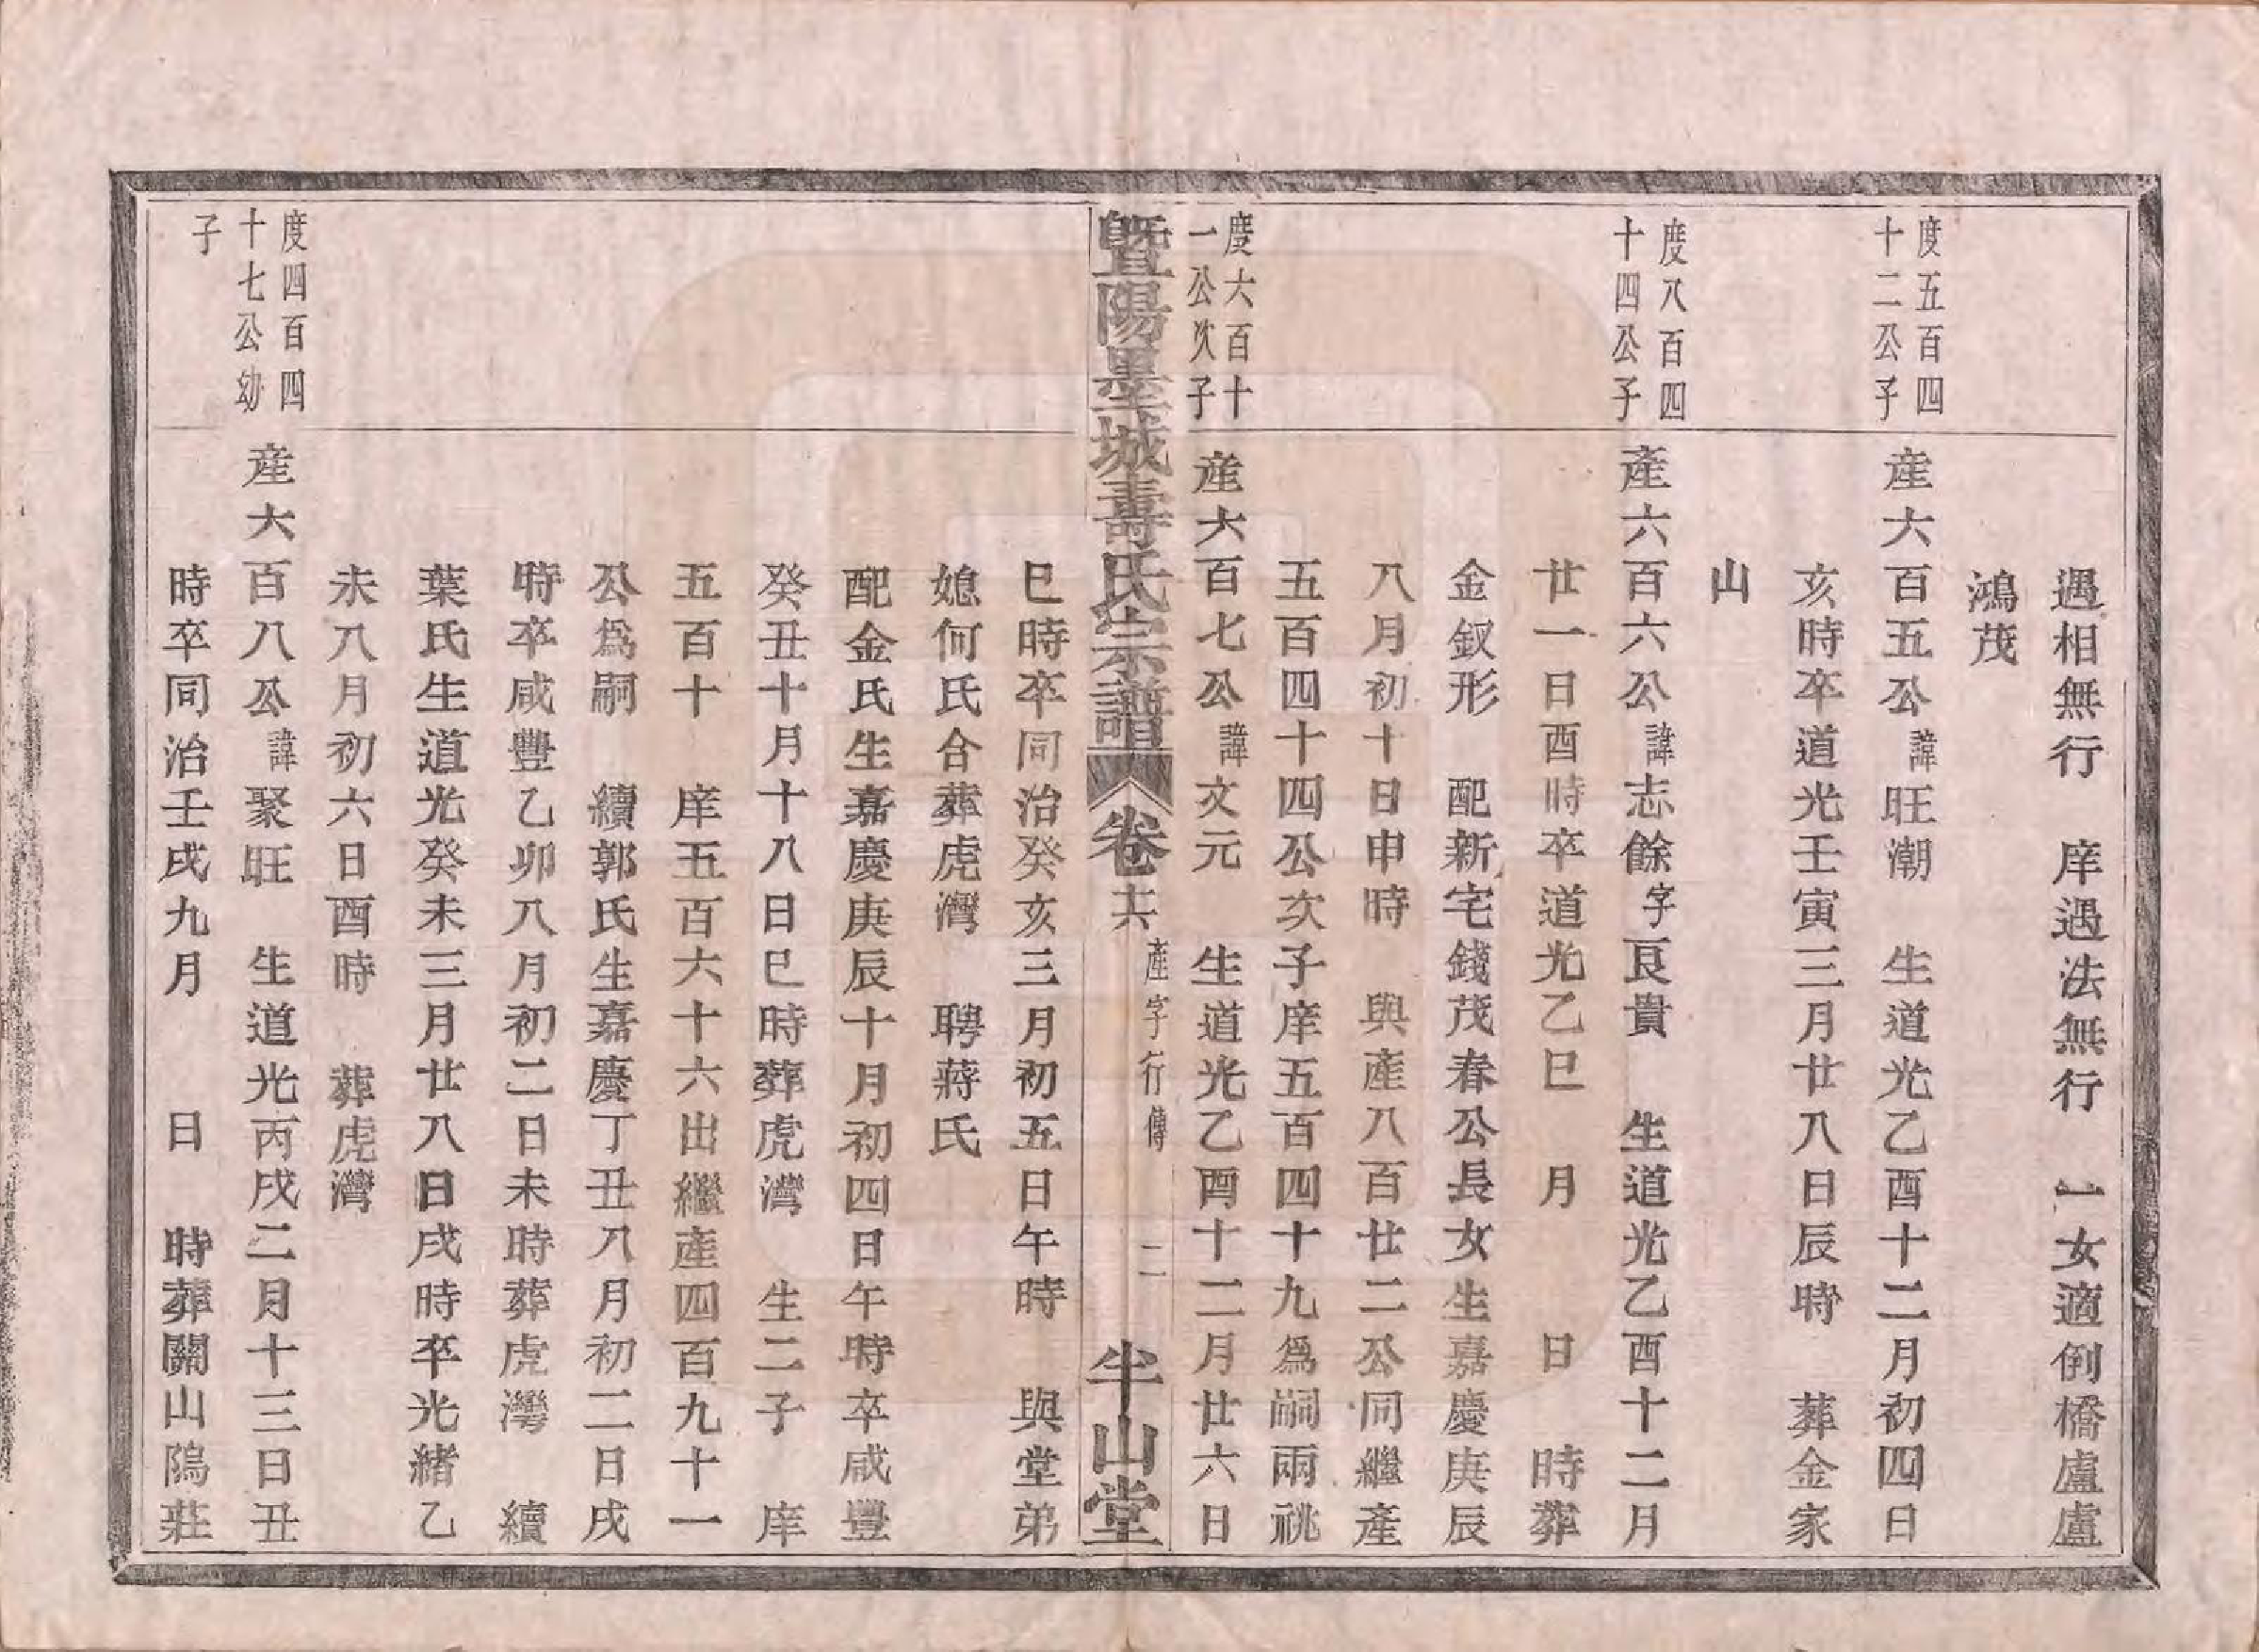 遇相無行　庠遇法無行　一女適倒橋盧盧
鴻茂
度五百四
十二公子
産六百五公諱旺潮　生道光乙酉十二月初四日
亥時卒道光壬寅三月廿八日辰時　葬金家
山
度八百四
十四公子
產六百六公諱志餘字艮貴　生道光乙酉十二月
廿一日酉時卒道光乙巳　月　　日　時葬
金釵形　配新宅錢茂春公長女生嘉慶庚辰
八月初十日申時　與產八百廿二公同繼產
五百四十四公次子庠五百四十九爲嗣兩祧
度六百十
一公次子
産六百七公諱文元　生道光乙酉十二月廿六日
暨陽墨城壽氏宗譜　卷十六　產字行傳　二　半山堂
巳時卒同治癸亥三月初五日午時　與堂弟
媳何氏合葬虎灣　聘蔣氏
配金氏生嘉慶庚辰十月初四日午時卒咸豐
癸丑十月十八日巳時葬虎灣　生二子　庠
五百十　庠五百六十六出繼産四百九十一
公爲嗣　續郭氏生嘉慶丁丑八月初二日戌
時卒咸豐乙卯八月初二日未時葬虎灣　續
葉氏生道光癸未三月廿八日戌時卒光緒乙
未八月初六日酉時　葬虎灣
度四百四
十七公幼
子
産六百八公諱聚旺　生道光丙戌二月十三日丑
時卒同治壬戌九月　　日　時葬關山隖莊